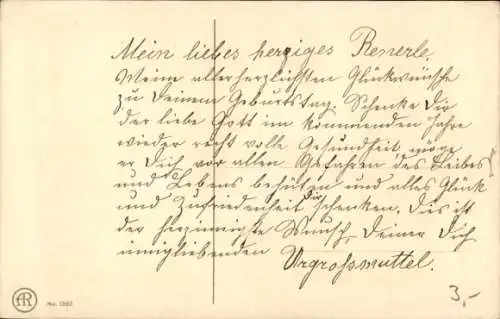 Mein liebes herziges Renerle.
Meine allerherzlichsten Glückwünsche
zu Deinem Geburtstag. Schenke Dir
der liebe Gott im kommenden Jahre
wieder recht volle Gesundheit möge
er Dich vor allen Gefahren des Leibes
und Lebens behüten und alles Glück
und Zufriedenheit dir schenken. Dies ist
der herzinnigste Wunsch, Deiner Dich
inniglibenden Urgrossmuttel.
3,-
AR
No. 1362